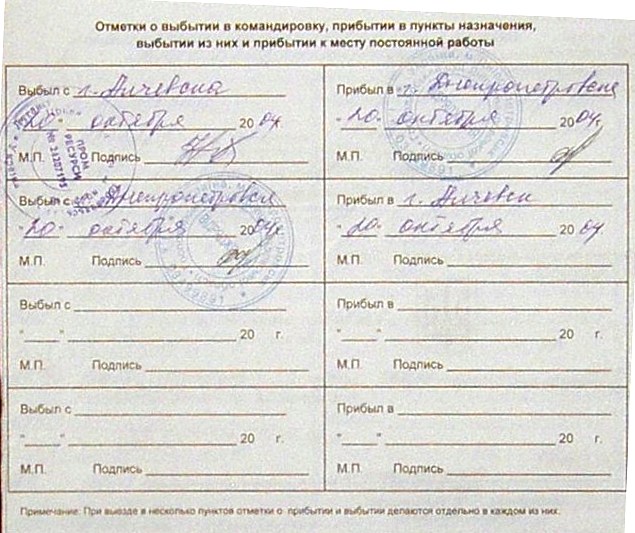 Отметки о выбытии в командировку, прибытии в пункты назначения,
выбытии из них и прибытии к месту постоянной работы
Выбыл с г. Алчевска
"20" октября 20 04 г.
М.П. Подпись
ПРОМ
РЕСУРСИ
№
Прибыл в г. Днепропетровск
"20" октября 20 04 г.
М.П. Подпись
Выбыл с Днепропетровск
"20" октября 20 04 г.
М.П. Подпись
Прибыл в г. Алчевск
"20" октября 20 04
М.П. Подпись
Выбыл с
"____" 20 г.
М.П. Подпись
Прибыл в
"____" 20 г.
М.П. Подпись
Выбыл с
"____" 20 г.
М.П. Подпись
Прибыл в
"____" 20 г.
М.П. Подпись
Примечание: При выезде в несколько пунктов отметки о прибытии и выбытии делаются отдельно в каждом из них.